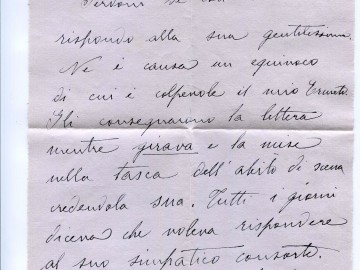 rispondo alla sua gentilissima.
Ne è causa un equivoco
di cui è colpevole il mio
Gli consegnarono la lettera
mentre girava e la mise
nella tasca dell'abito di scena
credendola sua. Tutti i giorni
diceva che voleva rispondere
al suo simpatico consorte.